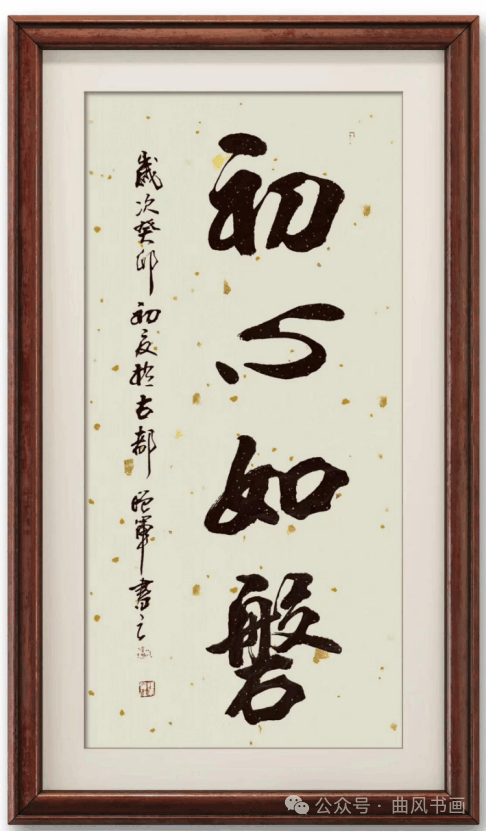 初心如磐
岁次癸卯初夏於古都昭军书之
公众号·曲风书画